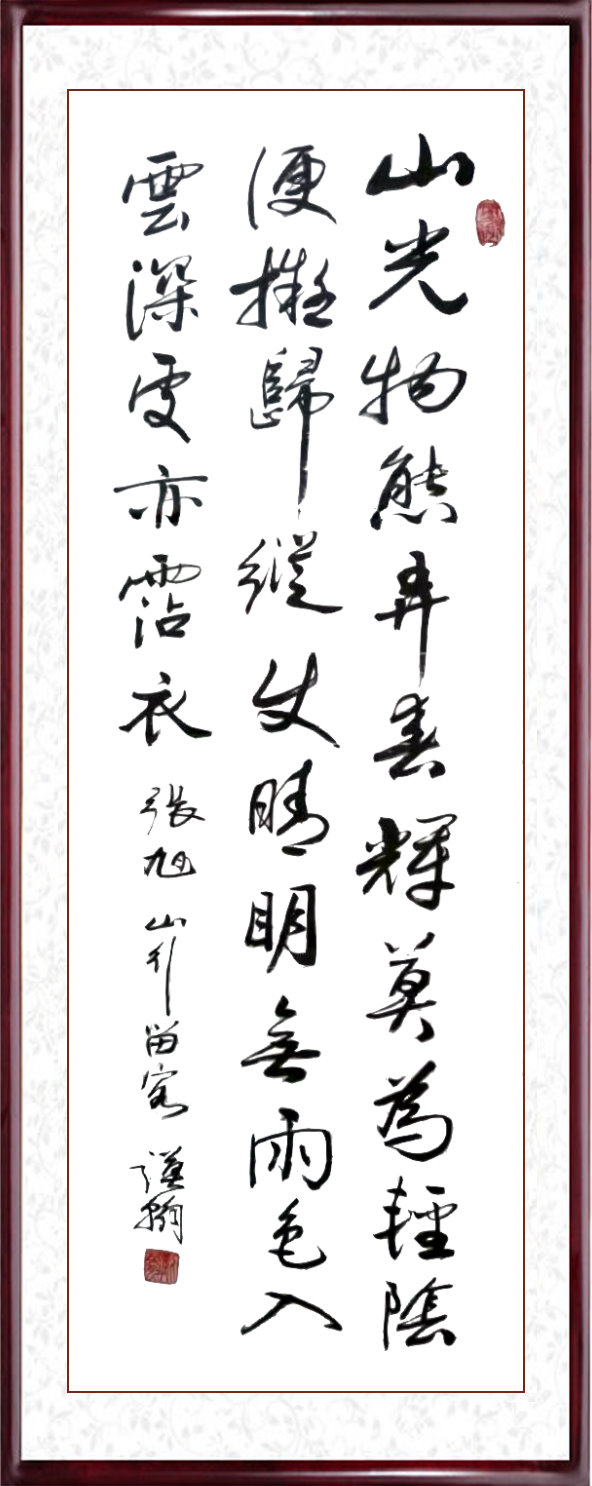 山光物態弄春輝莫為輕陰
便擬歸縱使晴明無雨色入
雲深處亦霑衣 張旭 山行留客